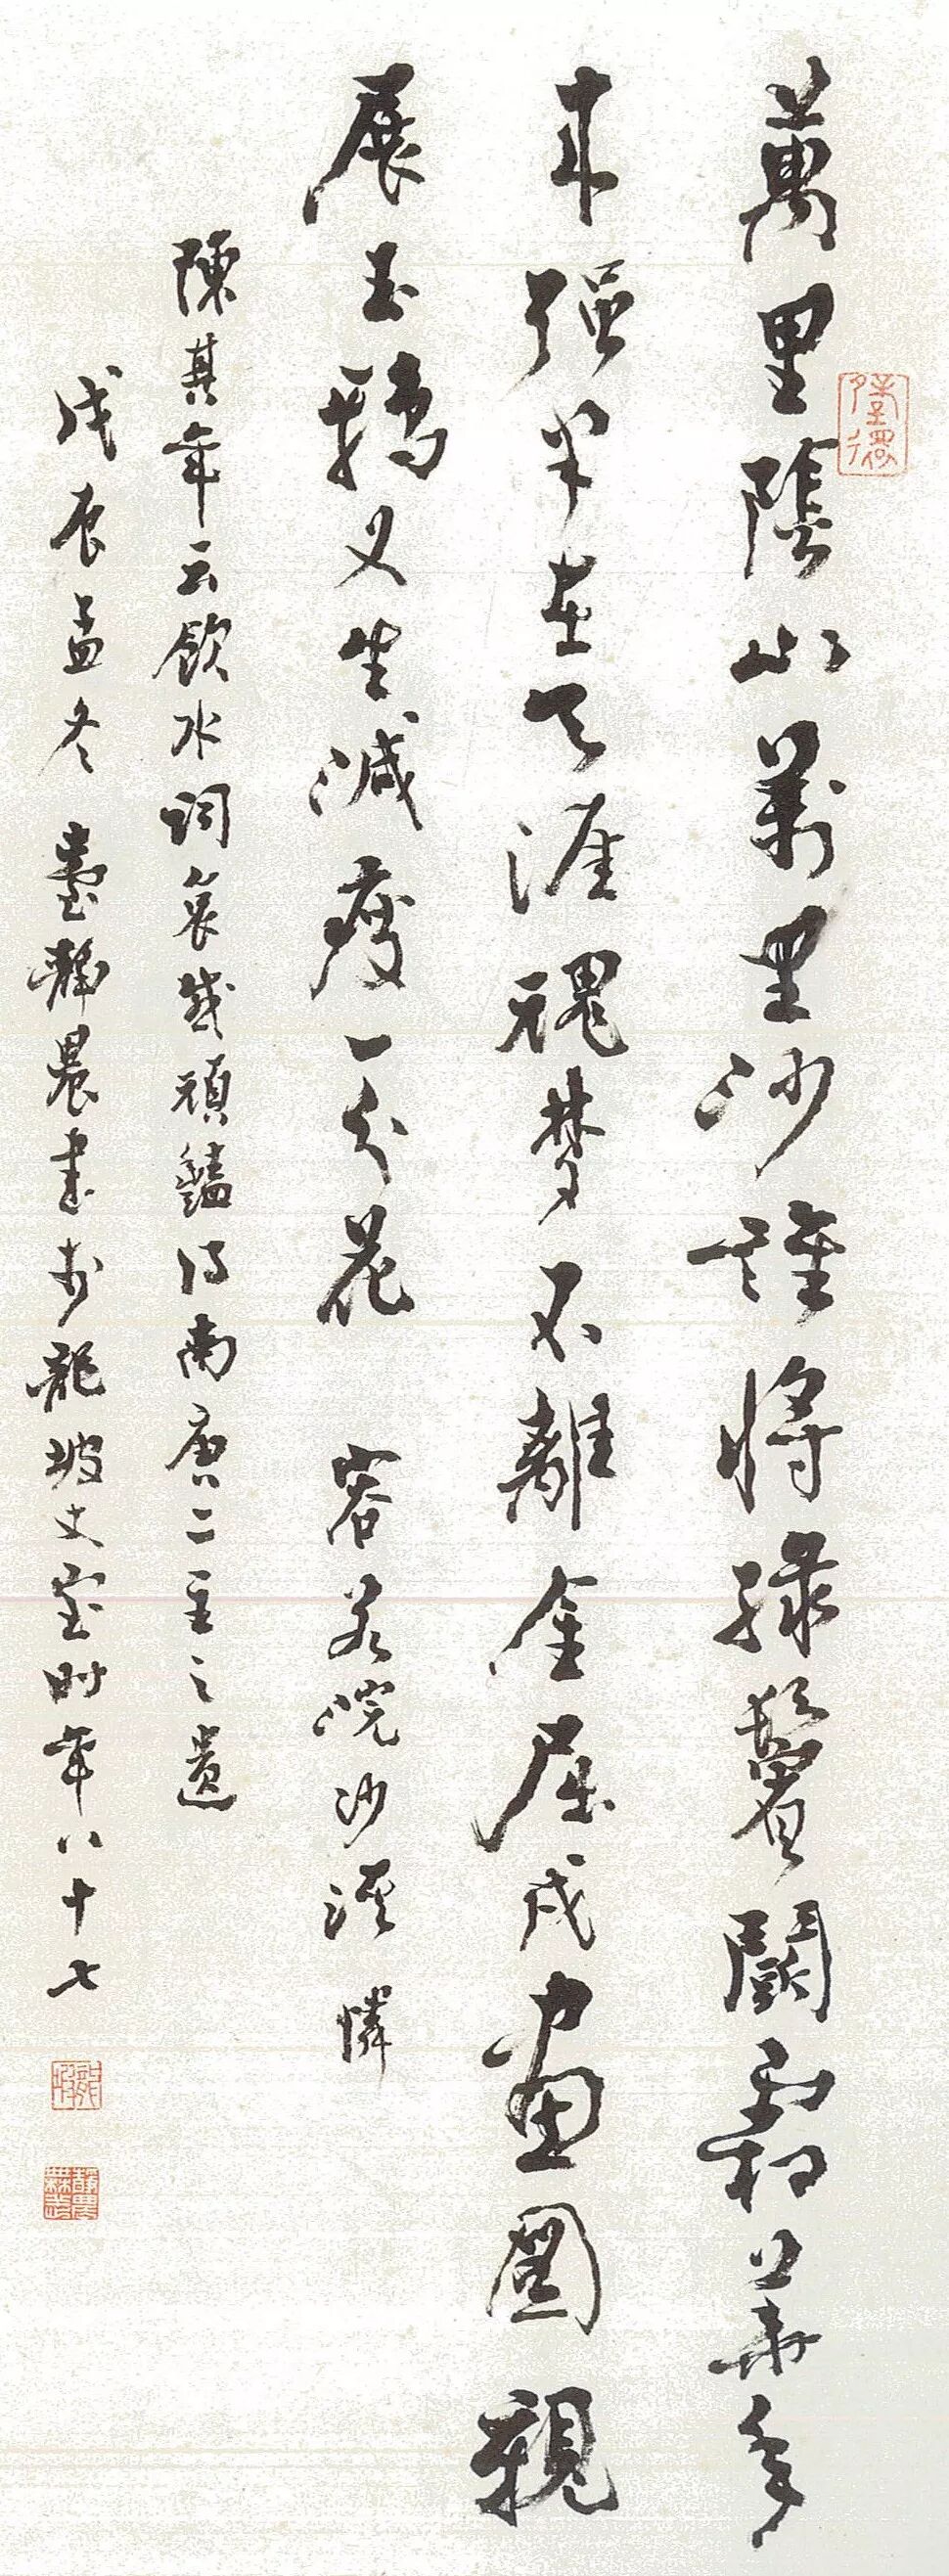 萬里陰山萬里沙誰將綠鬢鬬霜華年
來強半在天涯魂夢不離金屈戌畫圖親
展玉鵶叉生減瘦一分花 容若浣沙溪 憐
陳其年云飲水詞哀感頑豔得南唐二主之遺
戊辰孟冬 臺靜農書於龍坡丈室時年八十七